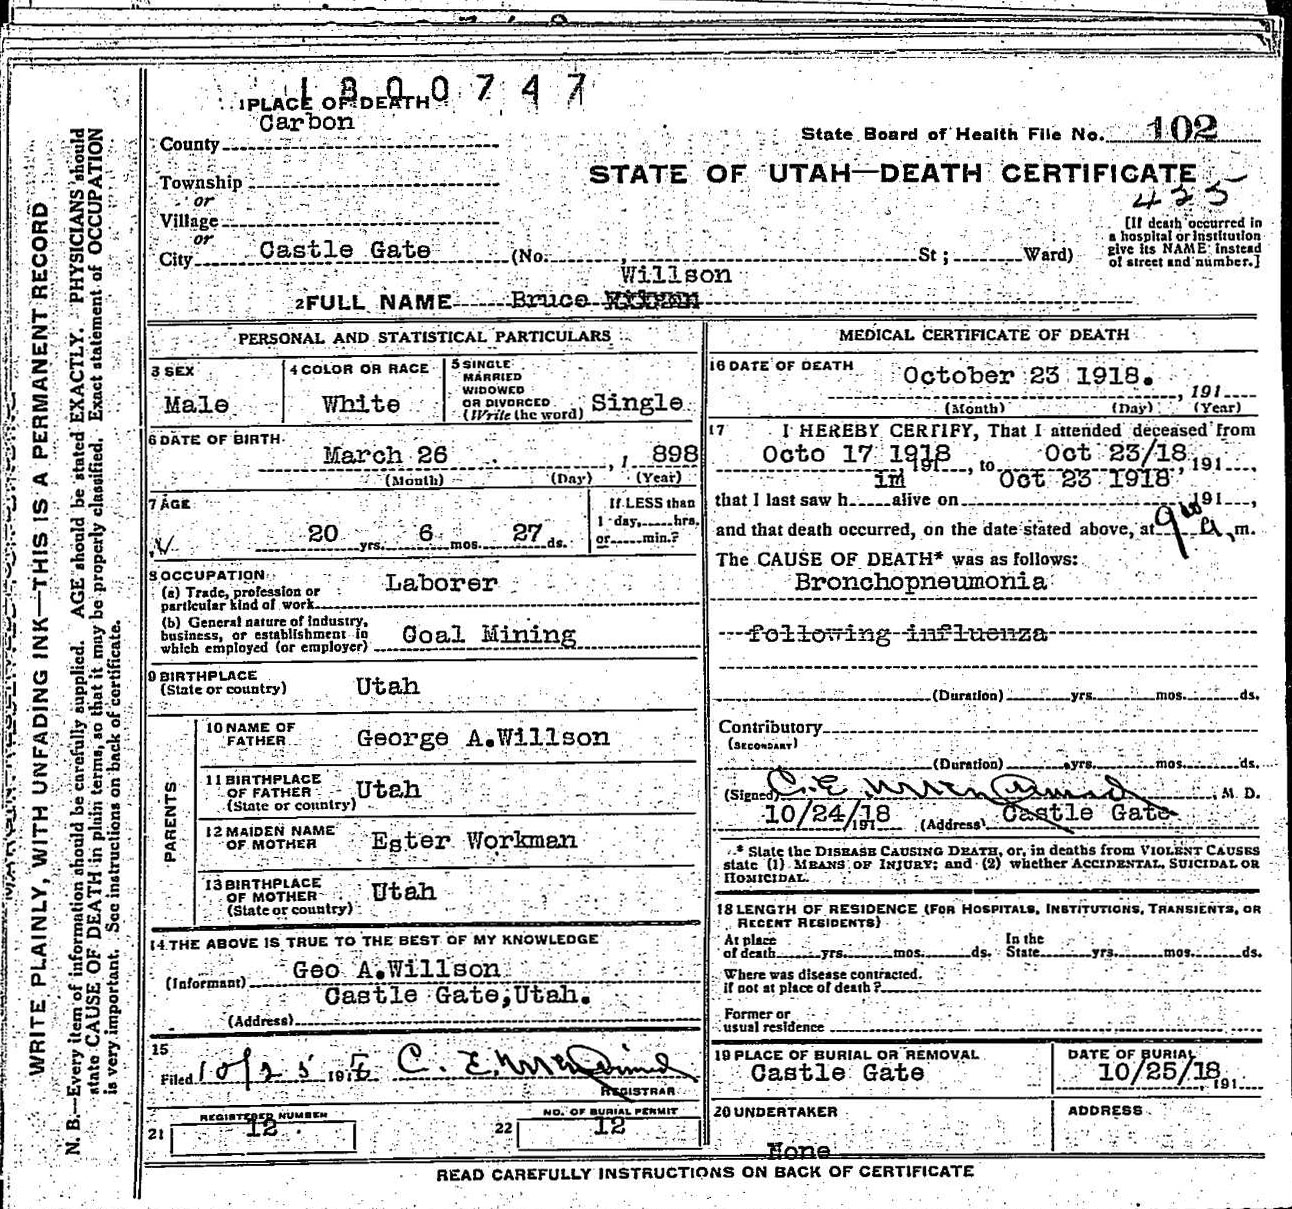 1300747
1 PLACE OF DEATH
Carbon
County
State Board of Health File No. 102
STATE OF UTAH—DEATH CERTIFICATE
435
Township
or
Village
or
City Castle Gate (No. , St ; Ward)
[If death occurred in
a hospital or institution
give its NAME instead
of street and number.]
Willson
2 FULL NAME Bruce
PERSONAL AND STATISTICAL PARTICULARS
3 SEX
Male
4 COLOR OR RACE
White
5 SINGLE
MARRIED
WIDOWED
OR DIVORCED
(Write the word) Single
6 DATE OF BIRTH
March 26 , 1 898
(Month) (Day) (Year)
7 AGE
20 yrs. 6 mos. 27 ds.
If LESS than
1 day, hrs.
or min.?
8 OCCUPATION
(a) Trade, profession or
particular kind of work Laborer
(b) General nature of industry,
business, or establishment in
which employed (or employer) Coal Mining
9 BIRTHPLACE
(State or country) Utah
PARENTS
10 NAME OF
FATHER George A.Willson
11 BIRTHPLACE
OF FATHER
(State or country) Utah
12 MAIDEN NAME
OF MOTHER Ester Workman
13 BIRTHPLACE
OF MOTHER
(State or country) Utah
14 THE ABOVE IS TRUE TO THE BEST OF MY KNOWLEDGE
(Informant) Geo A.Willson
Castle Gate,Utah.
(Address)
15
Filed 10/25 1918 C. E.
REGISTRAR
21 REGISTERED NUMBER
12
22 NO. OF BURIAL PERMIT
12
MEDICAL CERTIFICATE OF DEATH
16 DATE OF DEATH
October 23 1918.
, 191
(Month) (Day) (Year)
17 I HEREBY CERTIFY, That I attended deceased from
Octo 17 1918 191 , to Oct 23/18, 191 ,
im Oct 23 1918
that I last saw h alive on 191 ,
and that death occurred, on the date stated above, at 9 a. m.
The CAUSE OF DEATH* was as follows:
Bronchopneumonia
following influenza
(Duration) yrs. mos. ds.
Contributory
(SECONDARY)
(Duration) yrs. mos. ds.
(Signed) C. E. , M. D.
10/24/18 191 (Address) Castle Gate
* State the DISEASE CAUSING DEATH, or, in deaths from VIOLENT CAUSES
state (1) MEANS OF INJURY; and (2) whether ACCIDENTAL, SUICIDAL OR
HOMICIDAL.
18 LENGTH OF RESIDENCE (FOR HOSPITALS, INSTITUTIONS, TRANSIENTS, OR
RECENT RESIDENTS)
At place
of death yrs. mos. ds.
In the
State yrs. mos. ds.
Where was disease contracted.
if not at place of death?
Former or
usual residence
19 PLACE OF BURIAL OR REMOVAL
Castle Gate
DATE OF BURIAL
10/25/18, 191
20 UNDERTAKER
None
ADDRESS
READ CAREFULLY INSTRUCTIONS ON BACK OF CERTIFICATE
WRITE PLAINLY, WITH UNFADING INK—THIS IS A PERMANENT RECORD
N. B.—Every item of information should be carefully supplied. AGE should be stated EXACTLY. PHYSICIANS should
state CAUSE OF DEATH in plain terms, so that it may be properly classified. Exact statement of OCCUPATION
is very important. See instructions on back of certificate.